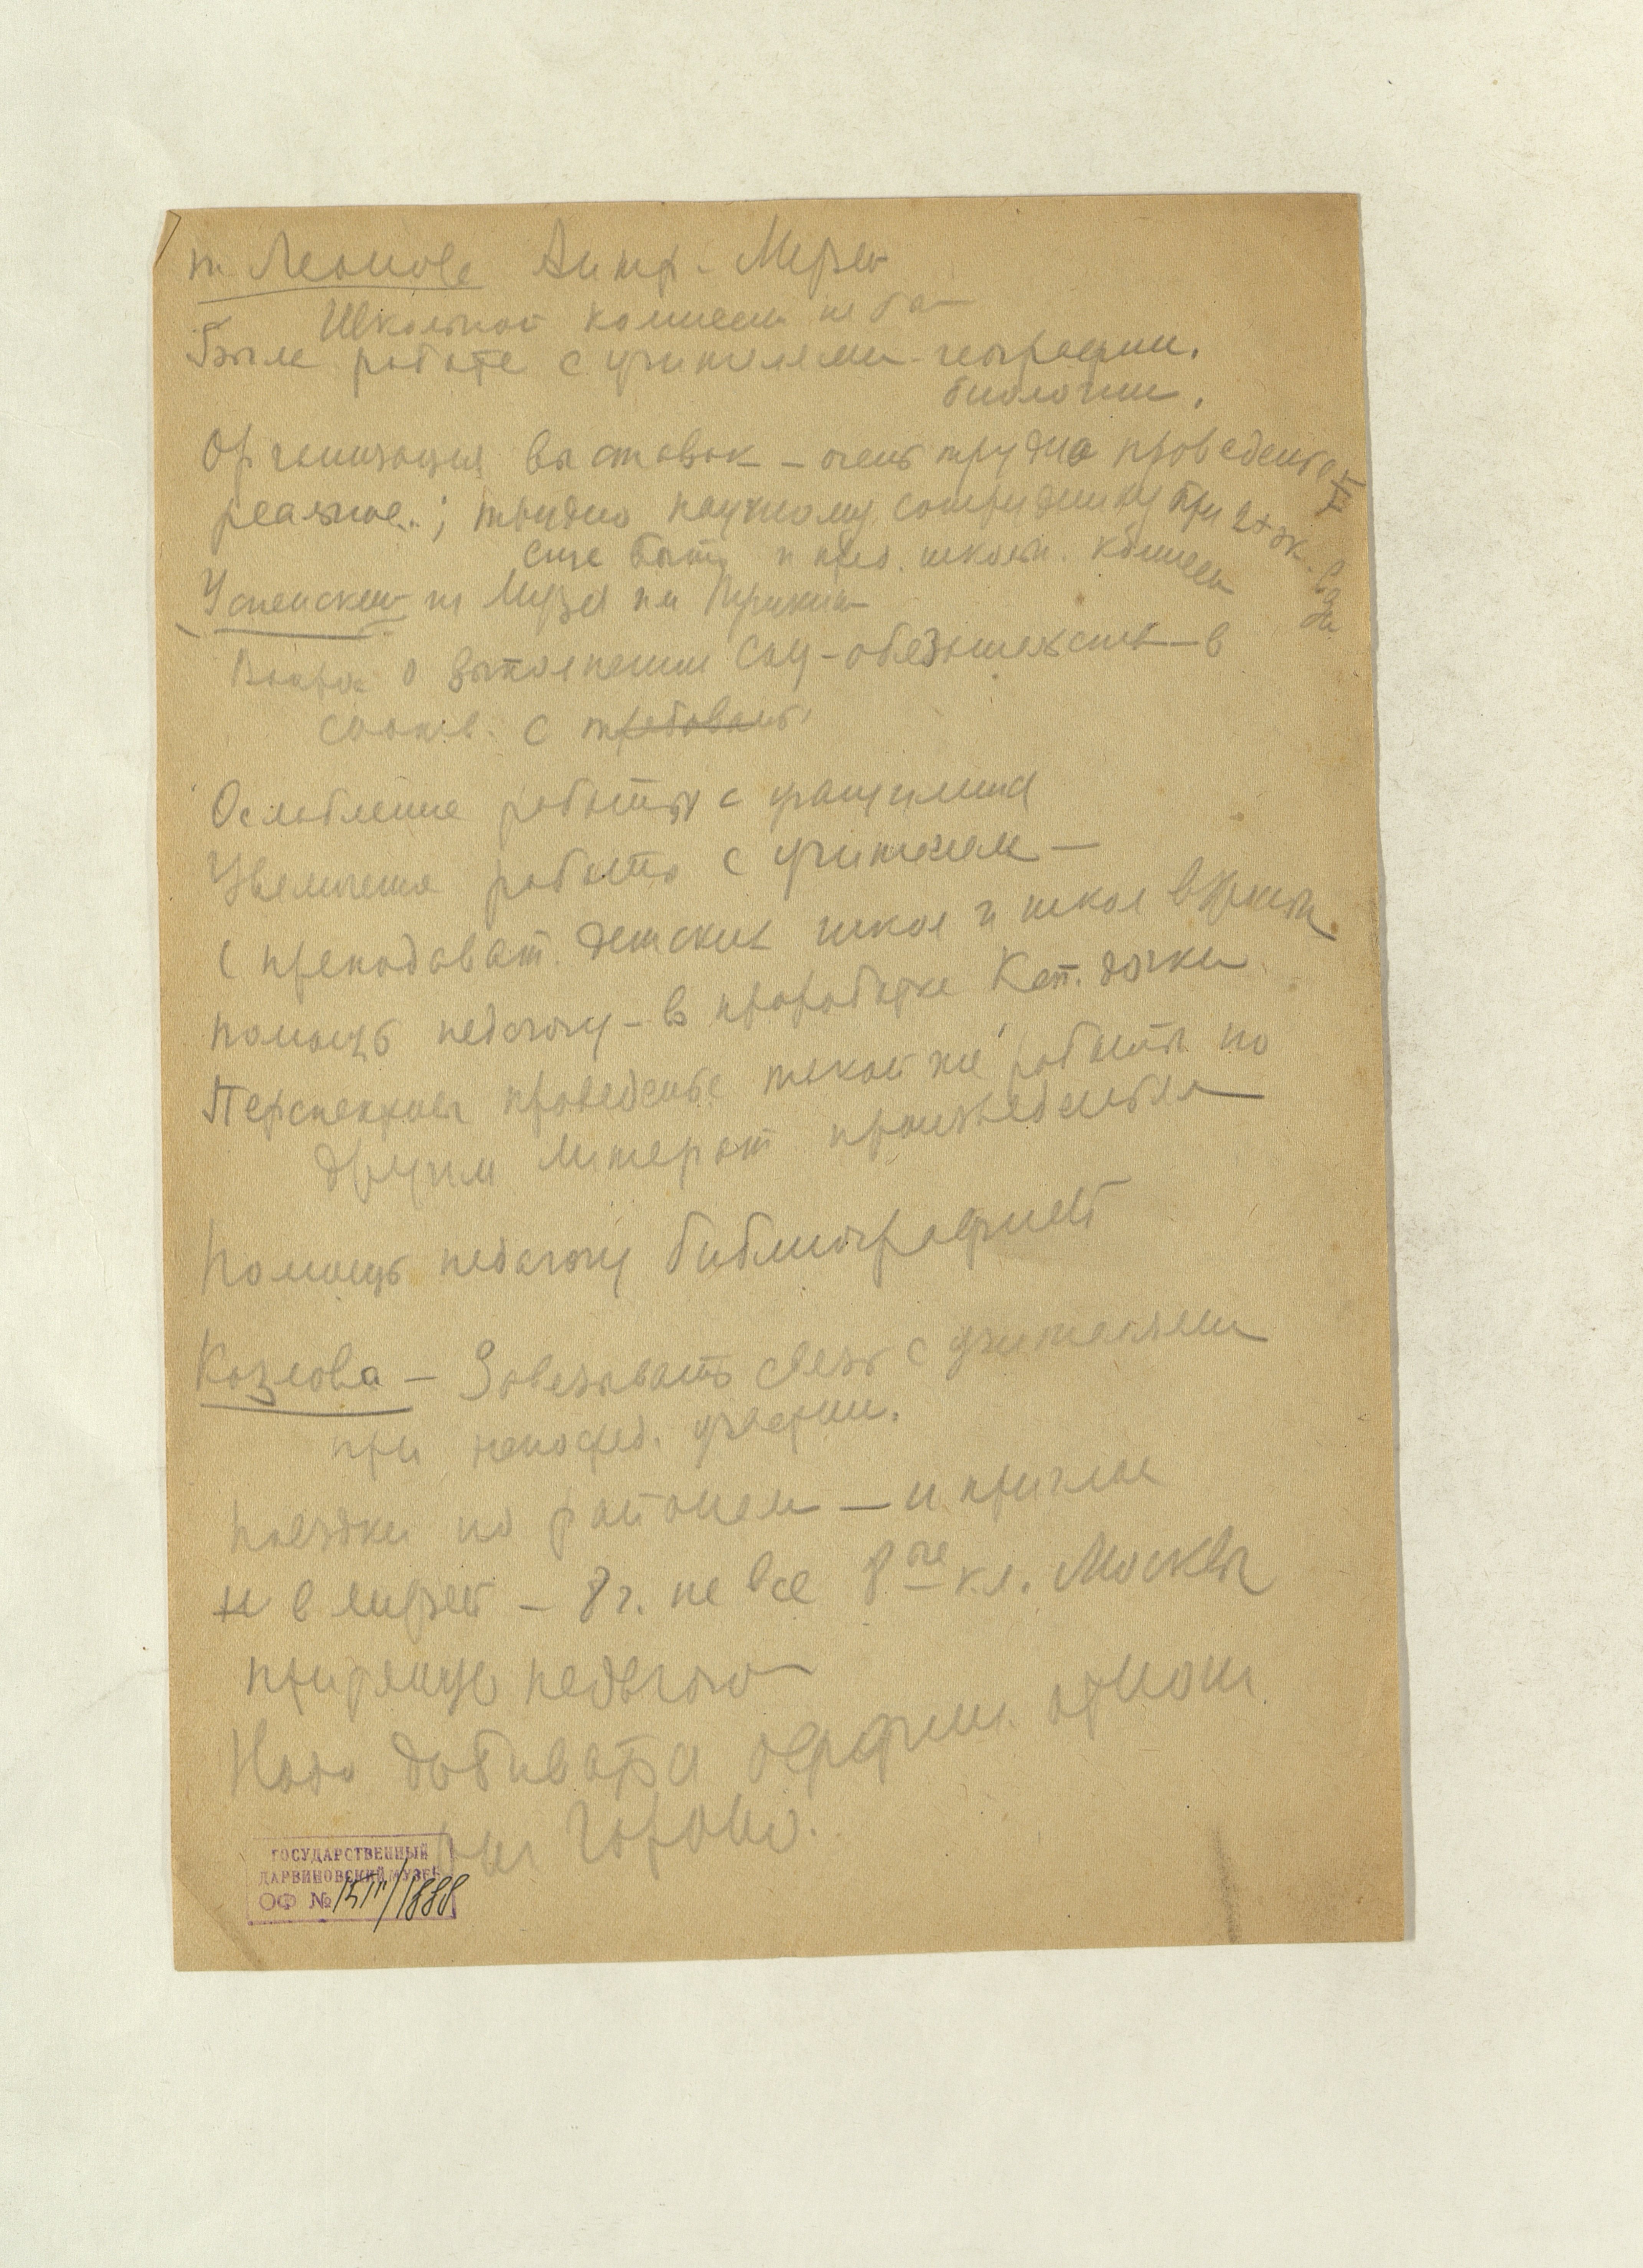 т. Леонова Антр. Музея
Школьной комиссии не бы
Была работа с учителями географии.
биологии.
Организация выставок – очень трудно проведение
реальное; трудно научному сотруднику при 2х эк
еще быть и пред. школьн. комиссии
Успенский из Музея им Пушкина
Вопрос о выполнении соц-обязательств – в
соотв. с требовань
Ослабление работы с учащимися
Увеличение работы с учителем –
с преподават. детских школ и школ взросл
помощь педагогу – в проработке Кап. дочки
Перспектива проведение такой же работы по
другим литерат произведениям
Помощь педагогу библиографией
Козлова – Завязывать связь с учителями
при непосред. участии.
Поездки по районам – и приглас
их в музей – 8 г. не все 8ые кл. Москвы
Надо добиваться оформ. отнош
ГорОНО.
ГОСУДАРСТВЕННЫЙ
ДАРВИНОВСКИЙ МУЗЕЙ
ОФ №
/1888